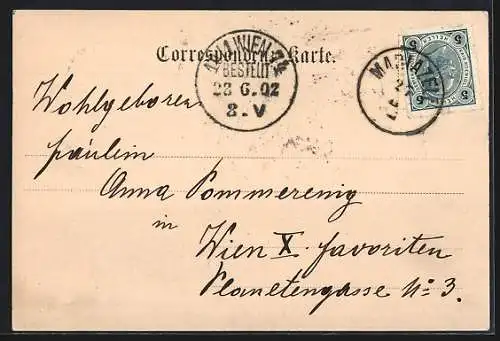 Correspondenz-Karte.
WIEN
BESTELLT
23 6.02
8.V
MARIAZELL
5 5
Wohlgeboren
Fräulein
Anna Pommerenig
in
Wien X. Favoriten
Planetengasse No: 3.